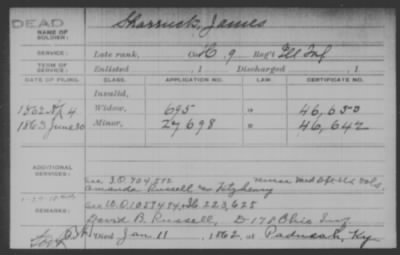 DEAD
NAME OF SOLDIER: Sharruck, James
SERVICE: Late rank, Co. H, 9 Reg't Ill Inf
TERM OF SERVICE: Enlisted , 1 Discharged , 1
DATE OF FILING. CLASS. APPLICATION NO. LAW. CERTIFICATE NO.
Invalid,
1862 4 Widow, 695 " 46,650
1863 June 30 Minor, 27698 " 46,642
ADDITIONAL SERVICES:
Amanda Russell Fitzhenry
REMARKS: See W.O. 1087484 223,625
David B. Russell, D-178 Ohio Inf
Died Jan 11, 1862, at Paducah, Ky